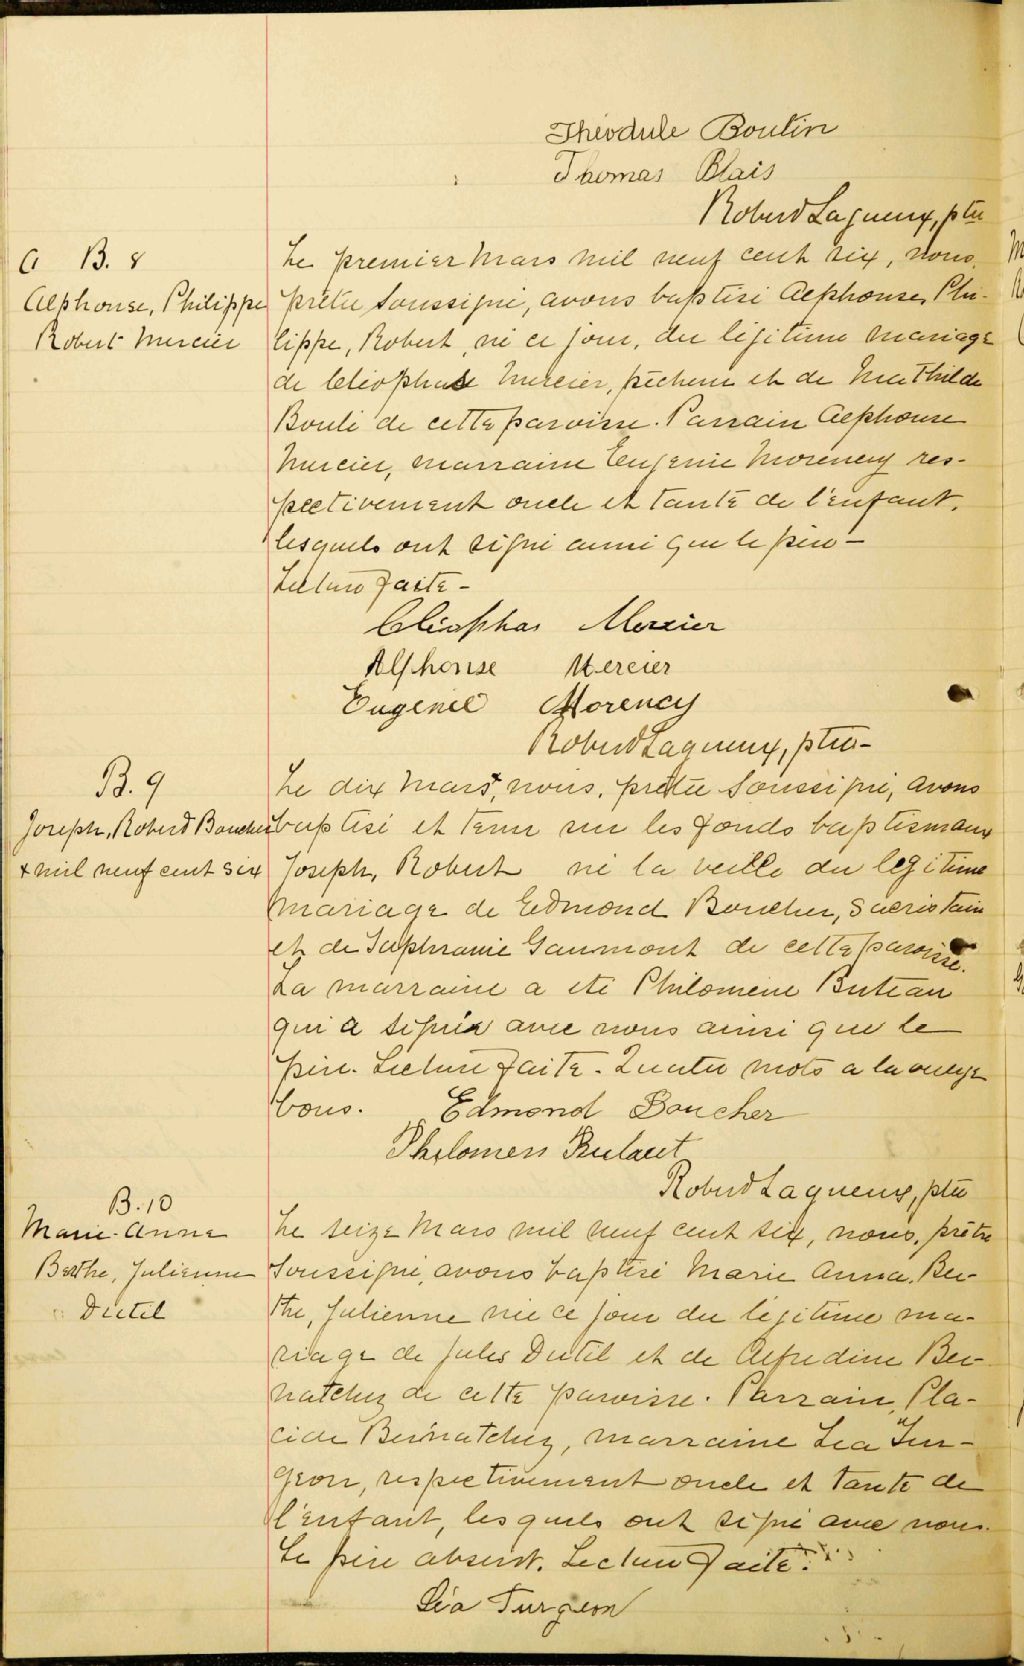 Théodule Boutin
Thomas Blais
Robert Lagueux, ptre
B. 8
Alphonse, Philippe
Robert Mercier
Le premier Mars mil neuf cent six, nous,
prêtre soussigné, avons baptisé Alphonse, Phi-
lippe, Robert, né ce jour, du légitime mariage
de Cléophas Mercier, pêcheur et de Mathilde
Boulé de cette paroisse. Parrain Alphonse
Mercier, marraine Eugenie Morency res-
pectivement oncle et tante de l'enfant,
lesquels ont signé ainsi que le père -
Lecture faite -
Cléophas Mercier
Alphonse Mercier
Eugénie Morency
Robert Lagueux, ptre -
B. 9
Joseph, Robert Boucher
x mil neuf cent six
Le dix Mars x, nous, prêtre soussigné, avons
baptisé et tenu sur les fonds baptismaux
Joseph, Robert né la veille du légitime
mariage de Edmond Boucher, Sacristain
et de Gaumont de cette paroisse.
La marraine a été Philomène Buteau
qui a signé avec nous ainsi que le
père. Lecture faite - Quatre mots a la marge
bons. Edmond Boucher
Philomen
Robert Lagueux, ptre
B. 10
Marie-Anna
Berthe, Julienne
Dutil
Le seize Mars mil neuf cent six, nous, prêtre
soussigné, avons baptisé Marie Anna, Ber-
the, Julienne née ce jour du légitime ma-
riage de Jules Dutil et de Alfredine Ber-
natchez de cette paroisse. Parrain, Pla-
cide Bernatchez, marraine Léa Tur-
geon, respectivement oncle et tante de
l'enfant, lesquels ont signé avec nous.
Le père absent. Lecture faite.
Léa Turgeon